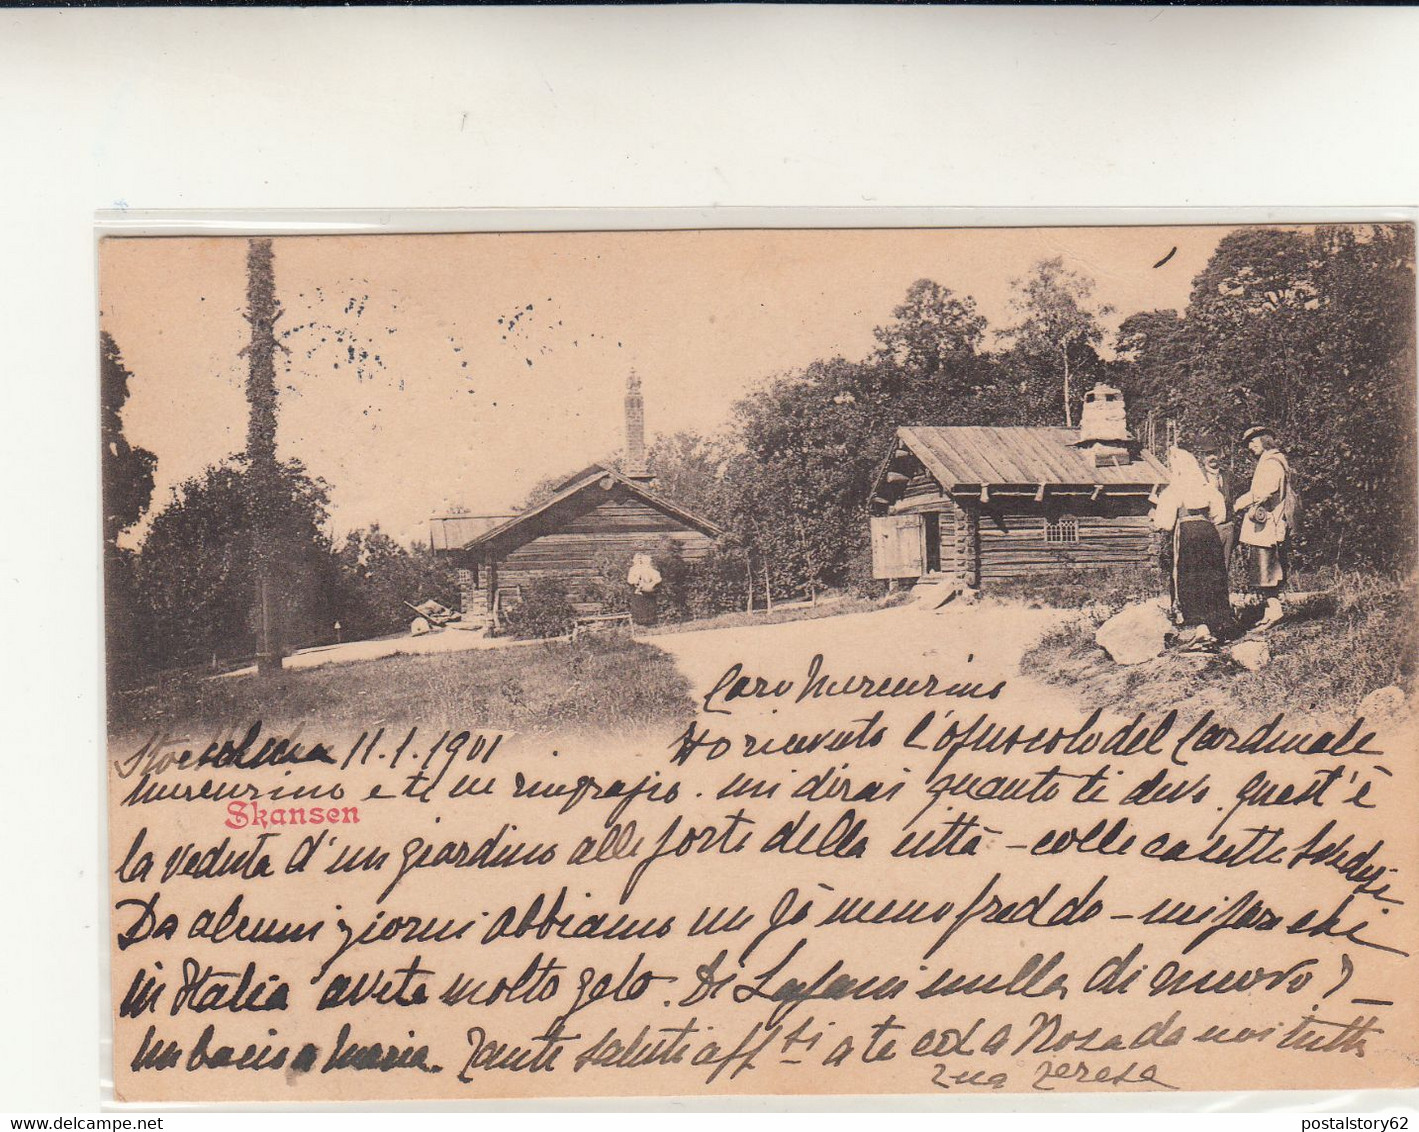 Caro Mercurino
Stoccolma 11.1.1901 Ho ricevuto l'opuscolo del Cardinale
Mercurino e te ne ringrazio. mi dirai quanto ti devo. Quest'è
Skansen
la veduta d'un giardino alle porte della città - colle casette svedesi
Da alcuni giorni abbiamo un pò meno freddo - mi pare che
in Italia avete molto gelo. Di nulla di nuovo?
Un bacio a Maria. Tante saluti aff.si a te ed a Rosa da noi tutti
tua Teresa
www.delcampe.net
postalstory62